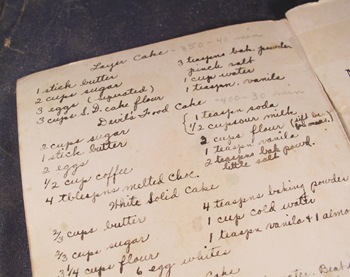 Layer Cake - 350-40 min
1 stick butter
2 cups sugar
3 eggs (seperated)
3 cups S.D. cake flour
3 teaspns bak. powder
pinch salt
1 cup water
1 teaspn. vanila
Devils Food Cake - 400-30 min
2 cups sugar
1 stick butter
2 eggs
1/2 cup coffee
4 tblespns melted choc.
1 teaspn soda
1/2 cup sour milk
2 cups flour
1 teaspn vanila
2 teaspns bak powd.
little salt
White Solid Cake
2/3 cups butter
2/3 cups sugar
3 1/4 cups flour
6 egg whites
4 teaspns baking powder
1 cup cold water
1 teaspn vanila & 1 almo
Cake